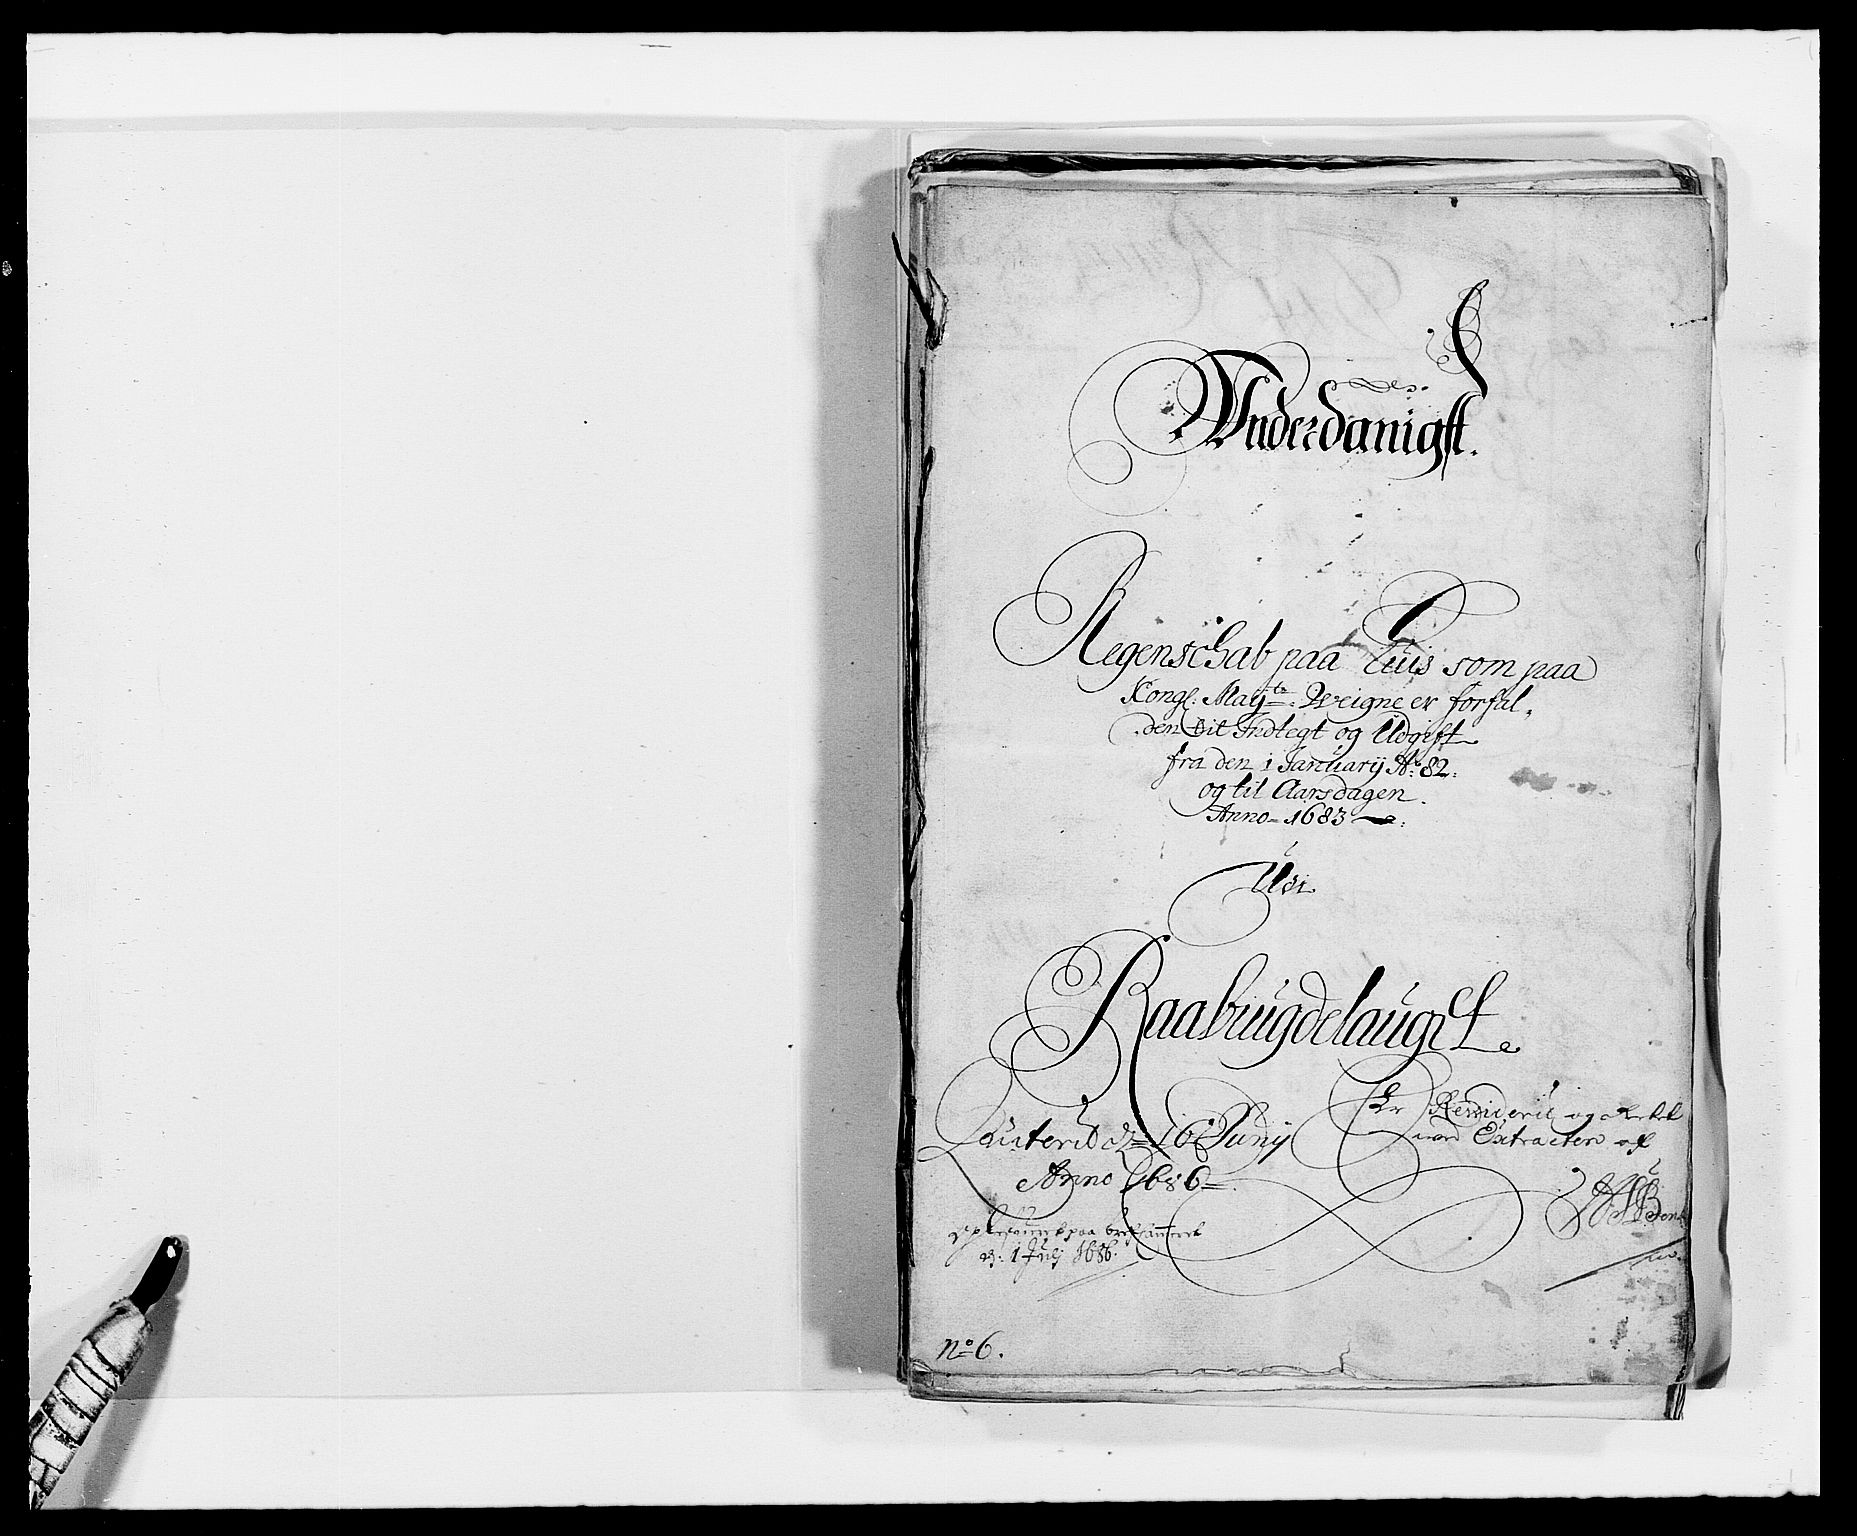 Underdanigst.
Regenschab paa Huis som paa
Kongl: Maÿts: Weigne er forfal-
den til Indtegt og Udgift
fra den 1 Januarij A° 82.
og til Aarsdagen.
Anno 1683
Udi
Raabÿugdelauget
Qviterit d= 16 Junij
Anno 1686
Er Reviderit og
med Extracten af
paa
d: 1 Julj 1686.
N° 6.